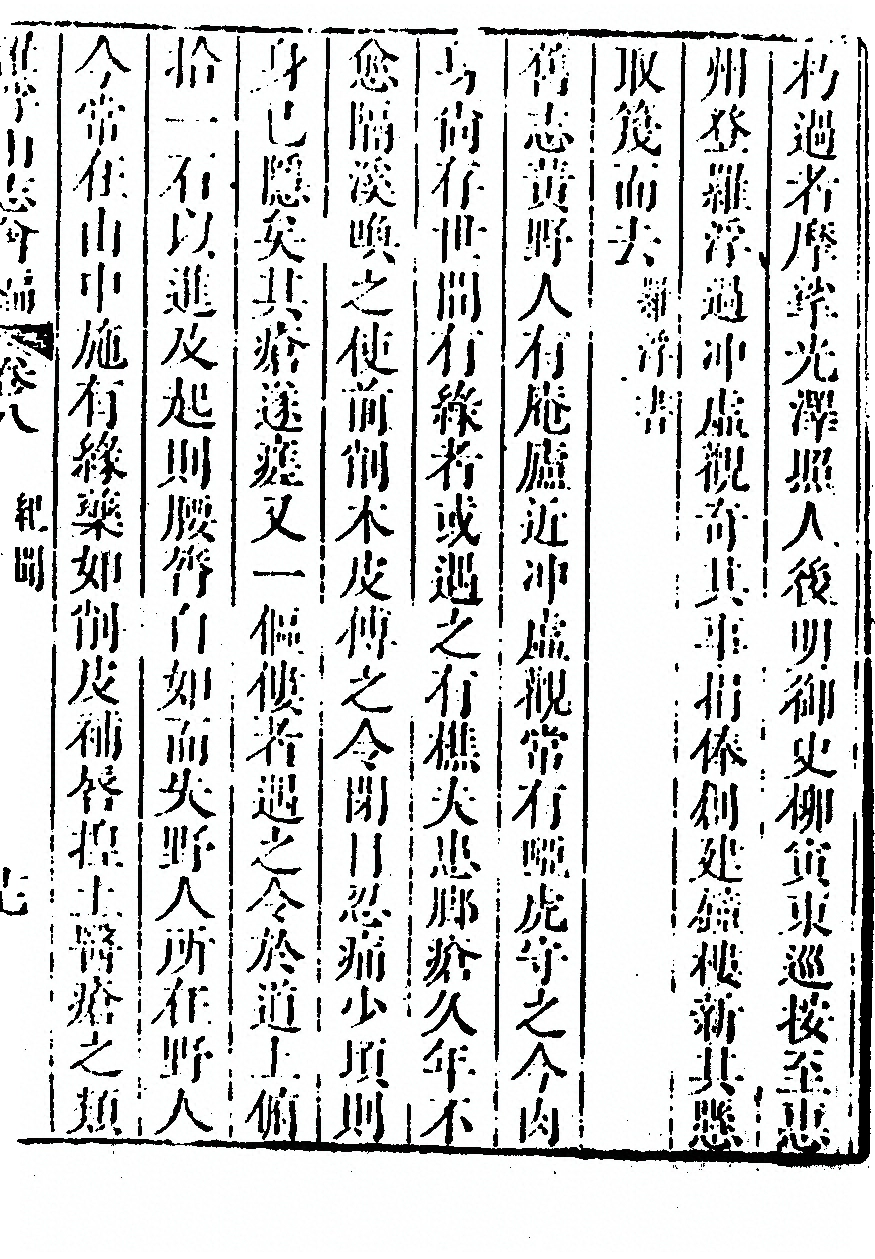 朽過者摩挲光澤照人後明御史柳寅東巡按至惠
州登羅浮過冲虛觀奇其事捐俸創建鐘樓新其懸
取筏而去羅浮書
舊志黄野人有庵廬近冲虛觀常有啞虎守之今肉
身尙存世間有緣者或遇之有樵夫患脚瘡久年不
愈隔溪喚之使前削木皮傅之令閉目忍痛少頃則
身已隱矣其瘡遂痊又一傴僂者遇之令於道上俯
拾一石以進及起則腰膂自如而失野人所在野人
今常在山中施有緣藥如削皮補唇揑土醫瘡之類
羅浮山志會編 卷八 紀聞 七